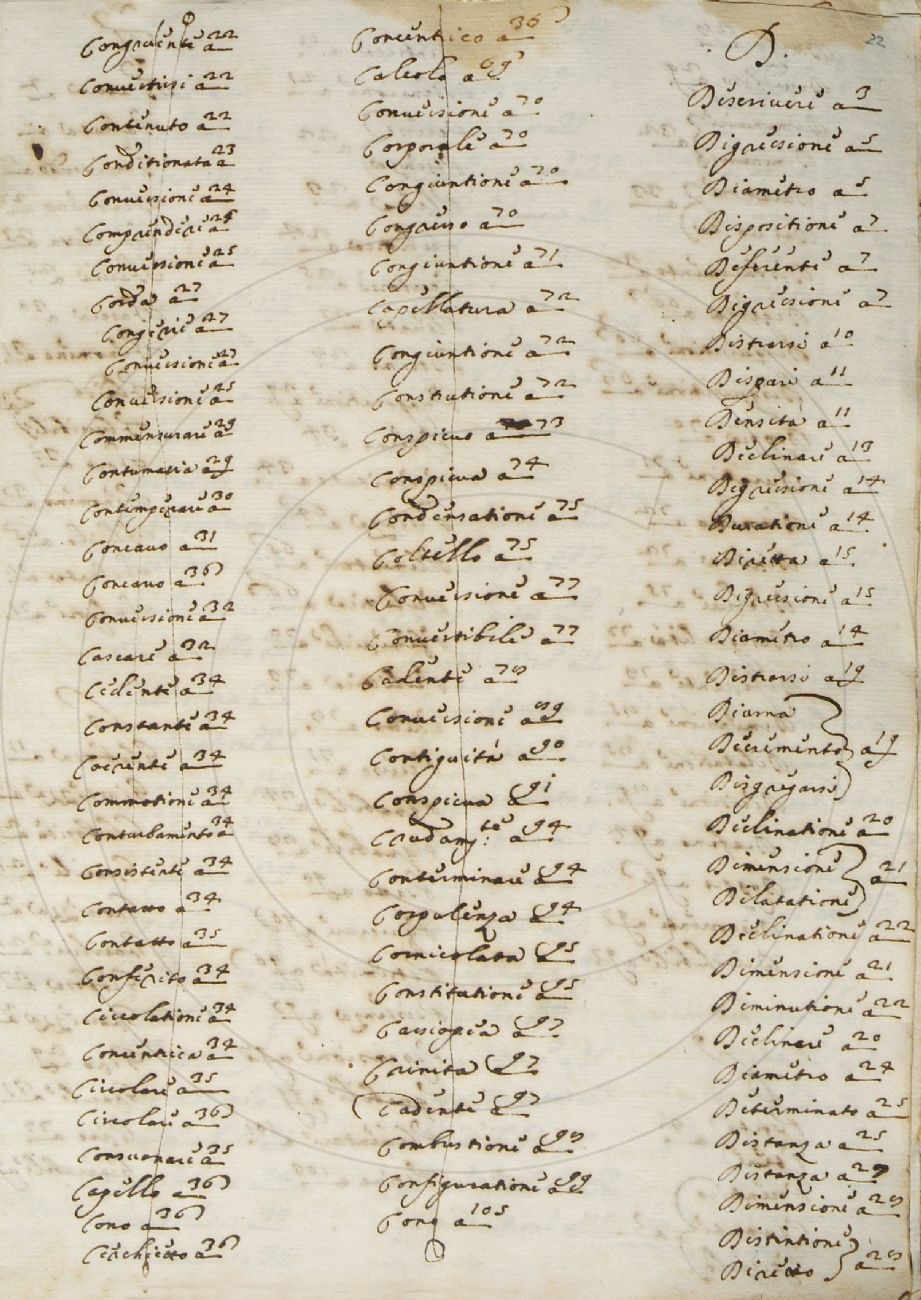 Congruente a 22
Convertirsi a 22
Contenuto a 22
Conditionata a 23
Conversione a 24
Comprendere a 25
Conversione a 25
Corda a 27
Congerie a 27
Conversione a 27
Conversione a 25
Commensurare a 29
Contumatia a 29
Contemperare a 30
Concavo a 31
Concavo a 36
Conversione a 32
Cascare a 32
Cedente a 34
Constante a 34
Coerente a 34
Commotione a 34
Conturbamento a 34
Consistente a 34
Contatto a 34
Contatto a 35
Conferito a 34
Circolatione a 34
Concentrica a 34
Circolare a 35
Circolare a 36
Conservare a 35
Capello a 36
Cono a 36
Cerchietto a 36
Concentrico a 36
Calcolo a 69
Conversione a 70
Corporale a 70
Congiuntione a 70
Congresso a 70
Congiuntione a 71
Capellatura a 72
Congiuntione a 72
Constitutione a 72
Conspicuo a 73
Conspicua a 74
Condensatione a 75
Coltello a 75
Conversione a 77
Convertibile a 77
Cadente a 78
Conversione a 89
Contiguità a 90
Conspicua a 91
a 94
Conterminare a 94
Corpulenza a 94
Cornicolata a 95
Constitutione a 95
Cassiopea a 97
Crinita a 97
Cadente a 97
Combustione a 98
Configuratione a 99
Cono a 105
22
D.
Descrivere a 3
Digressione a 5
Diametro a 5
Dispositione a 7
Deferente a 7
Digressione a 7
Distrarsi a 10
Dispari a 11
Densità a 11
Declinare a 13
Digressione a 14
Duratione a 14
Diretta a 15
Digressione a 15
Diametro a 14
Distrarsi a 19
Diurna
Decremento a 19
Disgregarsi
Declinatione a 20
Dimensione
a 21
Dilatatione
Declinatione a 22
Dimensione a 21
Diminutione a 22
Declinare a 20
Diametro a 24
Determinato a 25
Distanza a 25
Distanza a 27
Dimensione a 28
Distintione
a 28
Diretto